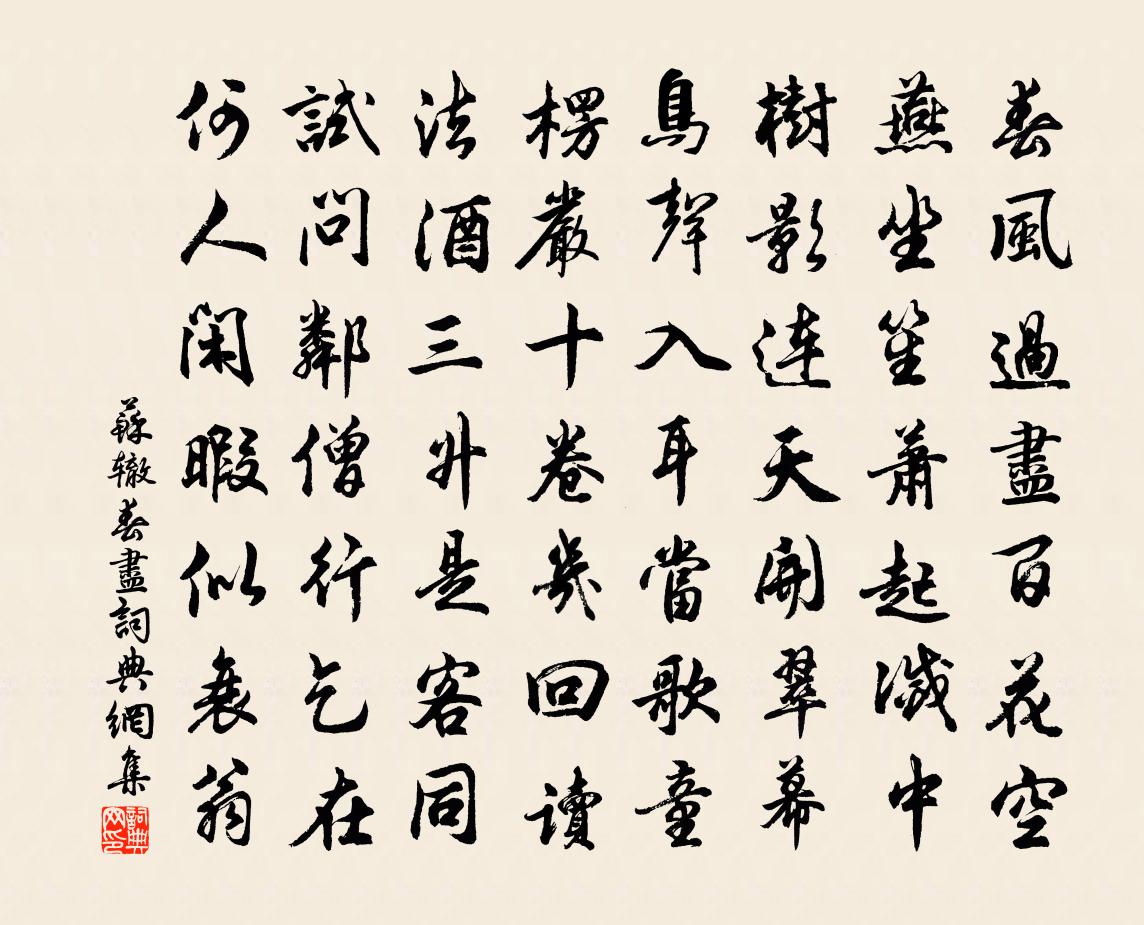 春風過盡百花空
燕坐笙蕭起滅中
樹影連天開翠幕
鳥聲入耳當歌童
楞嚴十卷幾回讀
法酒三升是客同
試問鄰僧行乞在
何人閑暇似衰翁
蘇辙春盡詞典網集
詞典網印